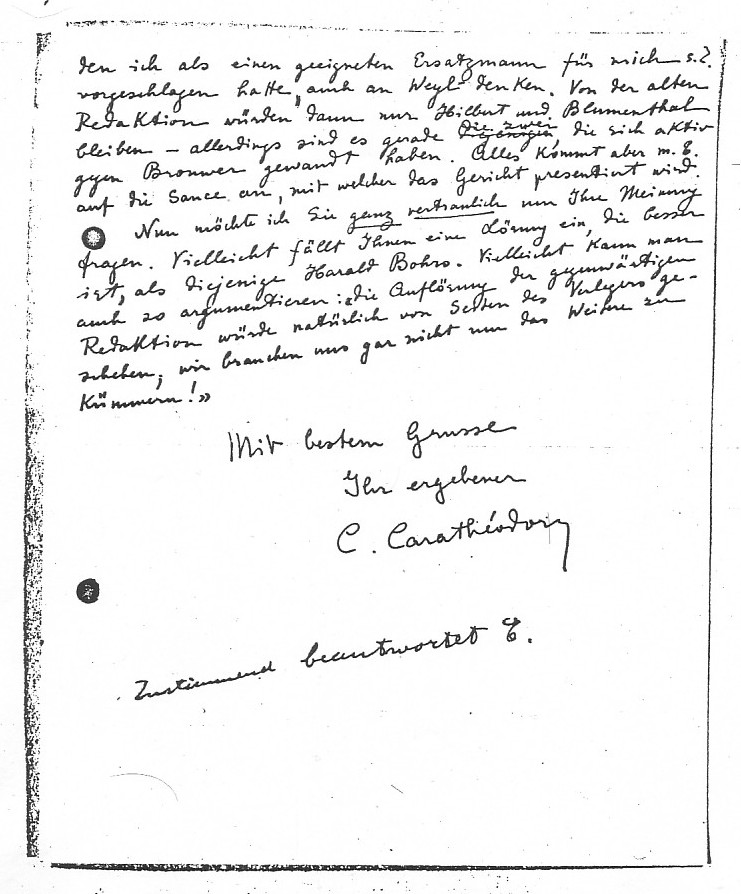 den ich als einen geeigneten Ersatzmann für mich s.Z.
vorgeschlagen hatte, auch an Weyl denken. Von der alten
Redaktion würden dann nur Hilbert und Blumenthal
bleiben – allerdings sind es gerade die zwei die sich aktiv
gegen Brouwer gewandt haben. Alles kommt aber m. E.
auf die Sauce an, mit welcher das Gericht presentiert wird.
Nun möchte ich Sie ganz vertraulich um Ihre Meinung
fragen. Vielleicht fällt Ihnen eine Lösung ein, die besser
ist, als diejenige Harald Bohrs. Vielleicht kann man
auch so argumentieren: «die Auflösung der gegenwärtigen
Redaktion würde natürlich von Seiten des Verlegers ge-
schehen; wir brauchen uns gar nicht um das Weitere zu
kümmern!»
Mit bestem Grusse
Ihr ergebener
C. Carathéodory
Zustimmend beantwortet E.